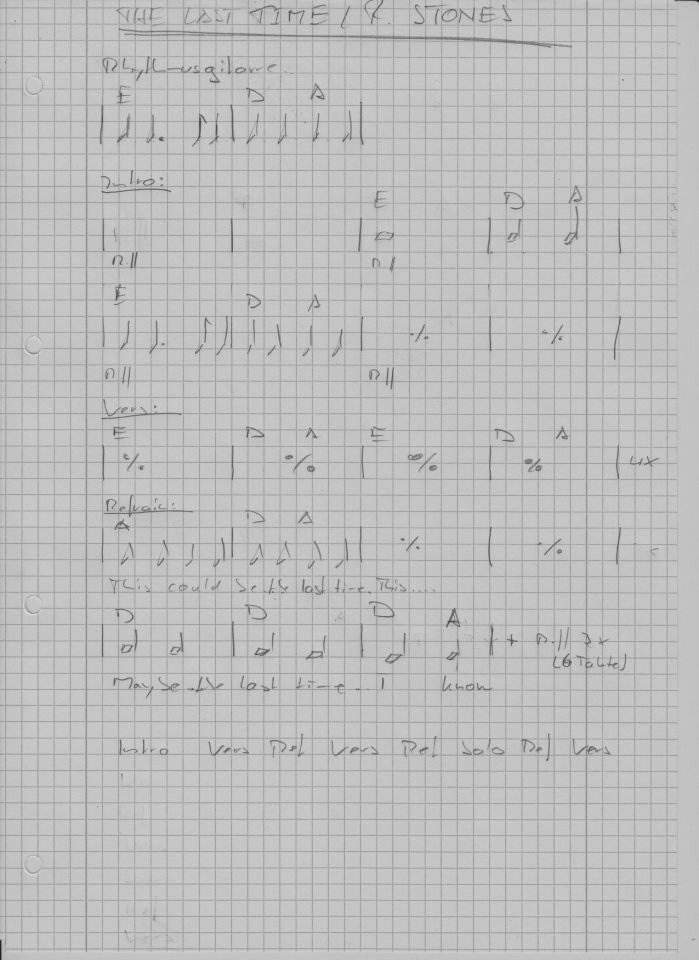 THE LAST TIME / R. STONES
Rhythmusgitarre
E D A
Intro:
E D A
R.|| R.|
E D A
% %
R|| R||
Vers:
E D A E D A
% % % % 4x
Refrain:
A D A
% %
This could be the last time. This....
D D D A
+ R.|| 3x
(6 Takte)
Maybe the last time... I know
Intro Vers Ref Vers Ref Solo Ref Vers